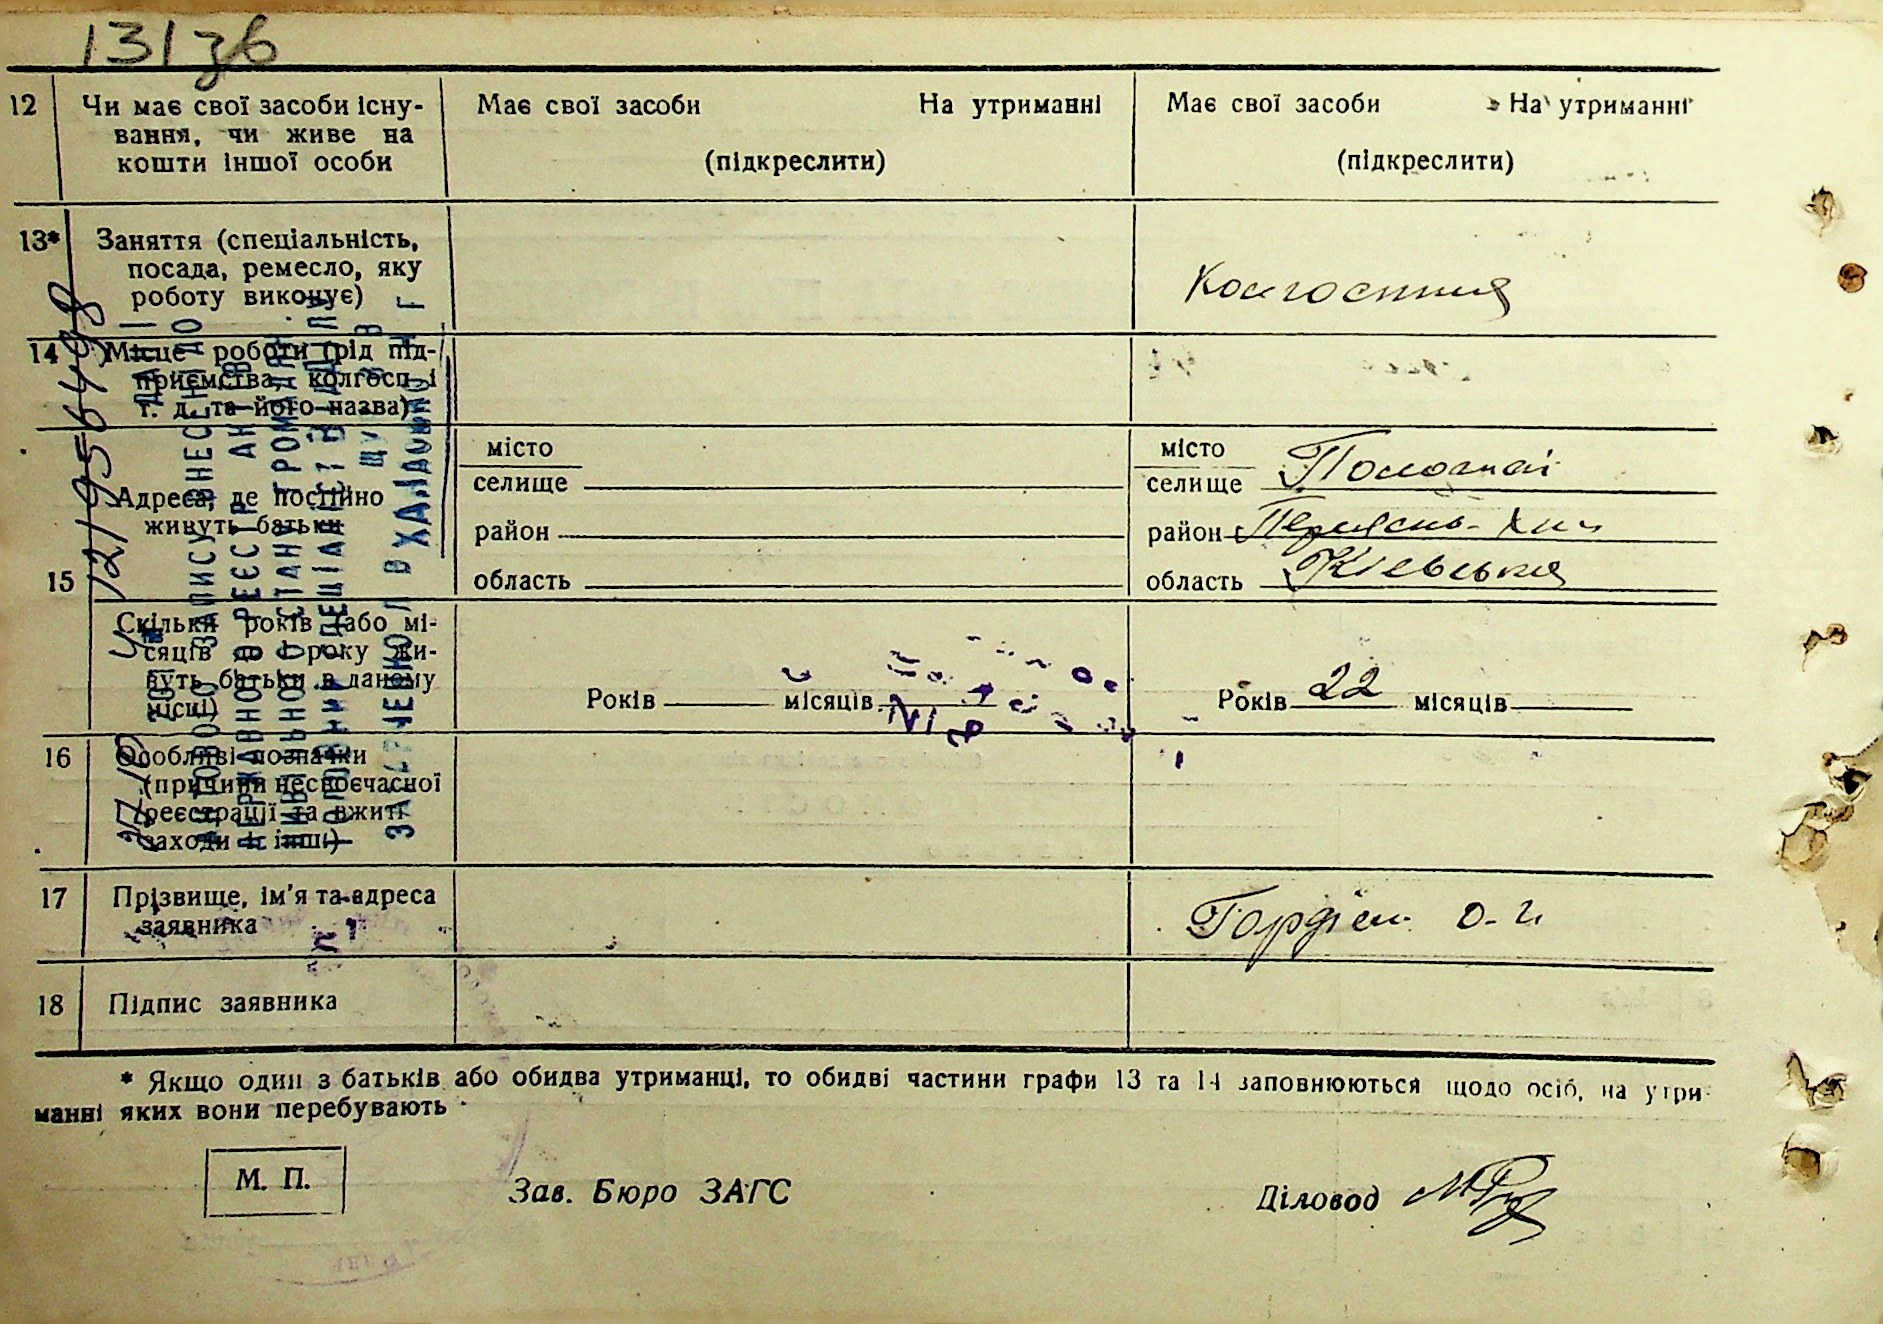 131зв
12 Чи має свої засоби існу-
вання, чи живе на
кошти іншої особи
Має свої засоби На утриманні
(підкреслити)
Має свої засоби На утриманні
(підкреслити)
13* Заняття (спеціальність,
посада, ремесло, яку
роботу виконує)
Колгоспниця
14 Місце роботи (рід під-
приємства, колгосп і
т. д. та його назва)
15 Адреса, де постійно
живуть батьки
місто
селище
район
область
місто
селище
район
область
Скільки років (або мі-
сяців до 1 року жи-
вуть батьки в даному
місці)
Років місяців
Років 22 місяців
16 Особливі позначки
(причини несвоєчасної
реєстрації та вжиті
заходи й інші)
17 Прізвище, ім'я та адреса
заявника
18 Підпис заявника
* Якщо один з батьків або обидва утриманці, то обидві частини графи 13 та 14 заповнюються щодо осіб, на утри-
манні яких вони перебувають
М. П.
Зав. Бюро ЗАГС
Діловод